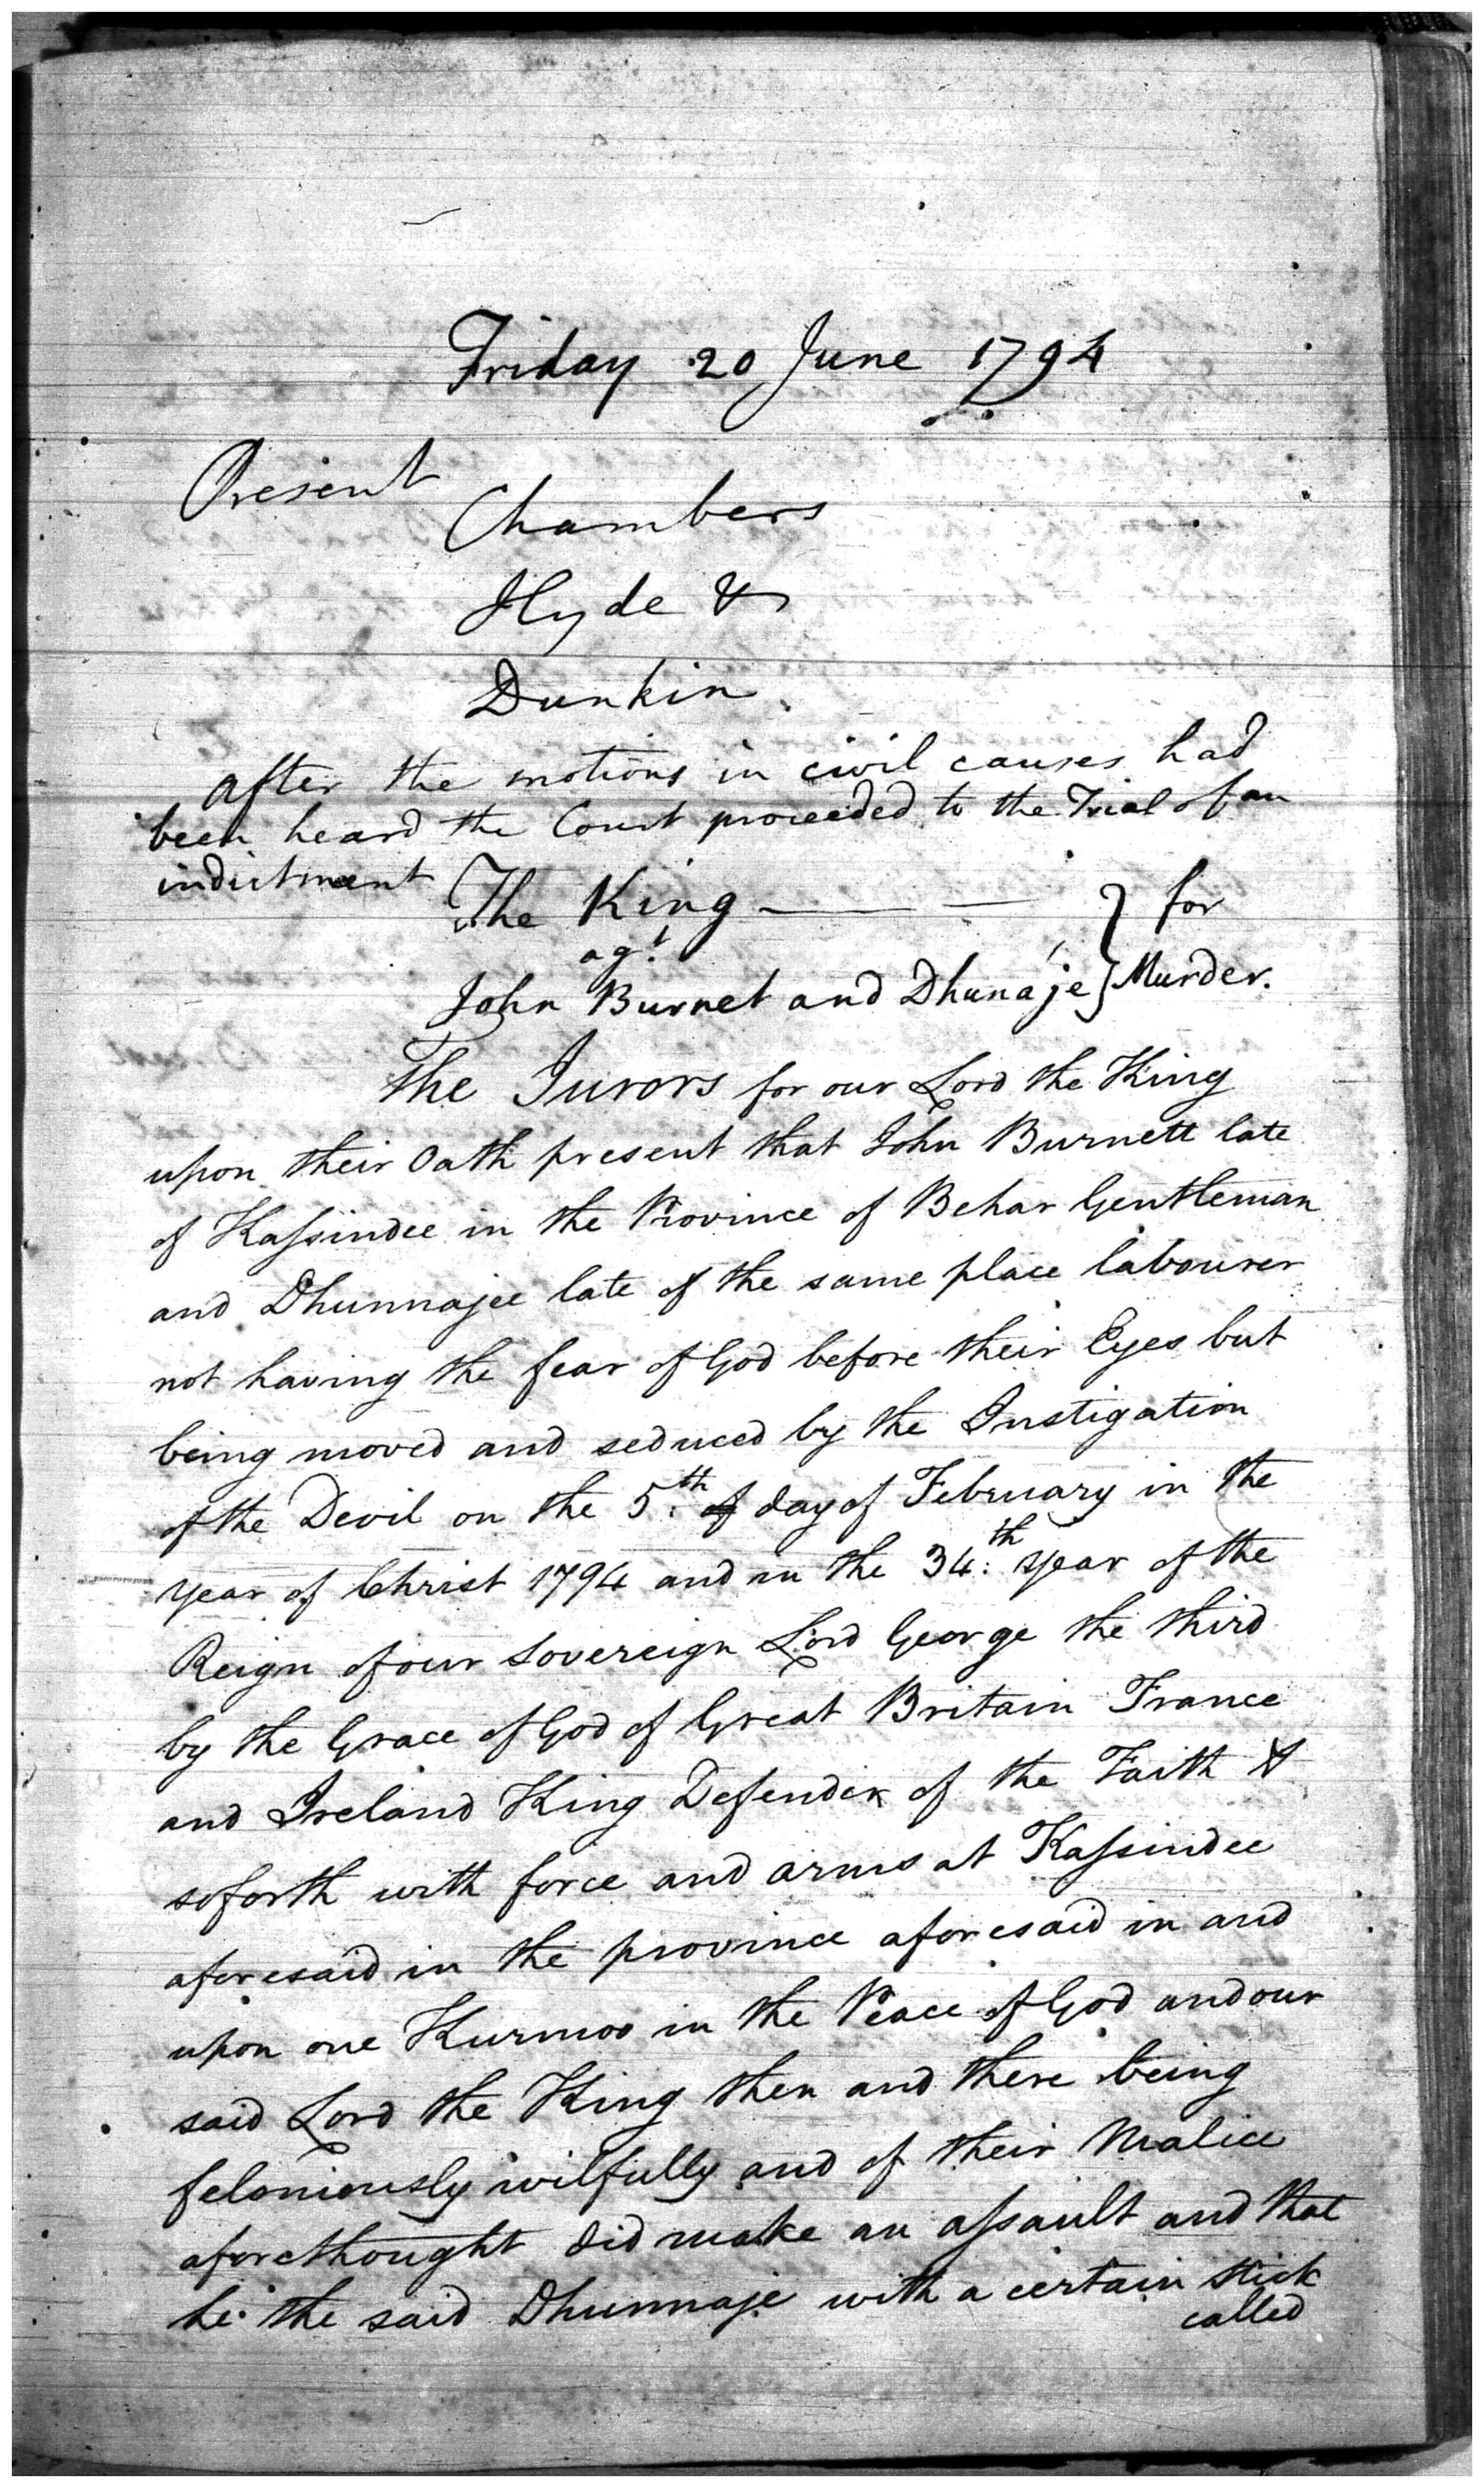 Friday 20 June 1794
Present
Chambers
Hyde &
Dunkin.
After the motions in civil causes had
been heard the Court proceeded to the Trial of an
indictment The King — — } for
agt.
John Burnet and Dhunáje } Murder.
The Jurors for our Lord the King
upon their Oath present that John Burnett late
of Kaſsindee in the Province of Behar Gentleman
and Dhunnajee late of the same place labourer
not having the fear of God before their Eyes but
being moved and seduced by the Instigation
of the Devil on the 5.th of day of February in the
year of Christ 1794 and in the 34.th year of the
Reign of our Sovereign Lord George the third
by the Grace of God of Great Britain France
and Ireland King Defender of the Faith &
soforth with force and arms at Kaſsindee
aforesaid in the province aforesaid in and
upon one Kurmoo in the Peace of God and our
said Lord the King then and there being
feloniously wilfully and of their Malice
aforethought did make an aſsault and that
he the said Dhunnaje with a certain stick
called